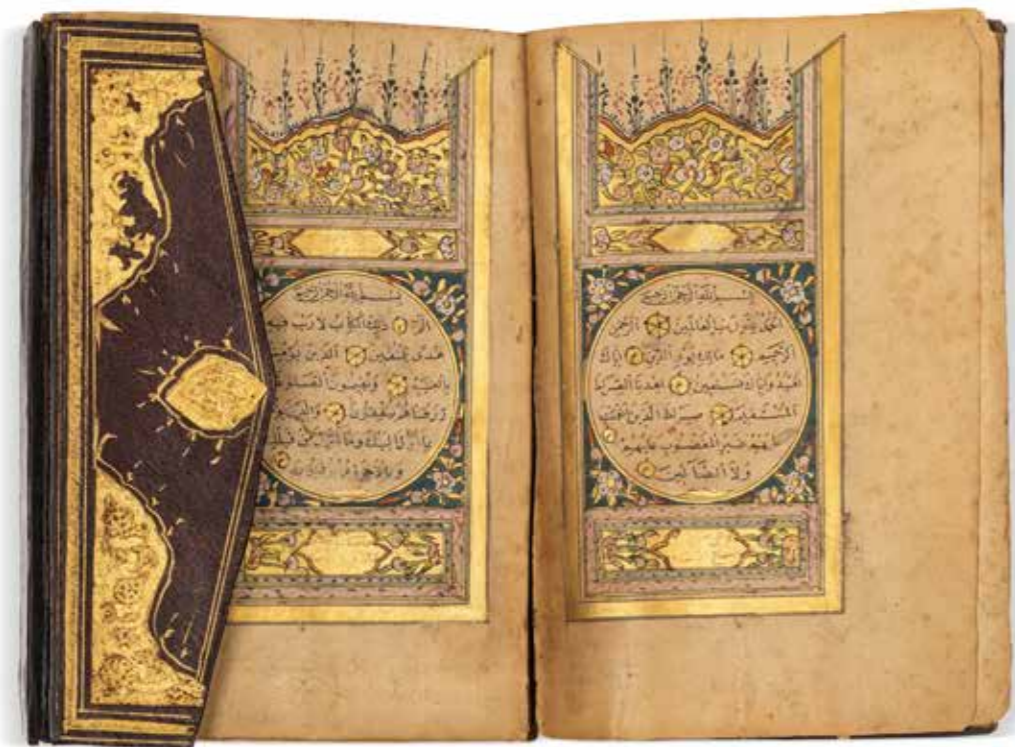 بسم الله الرحمن الرحيم
الحمد لله رب العالمين الرحمن
الرحيم مالك يوم الدين اياك
نعبد واياك نستعين اهدنا الصراط
المستقيم صراط الذين انعمت
عليهم غير المغضوب عليهم
ولا الضالين
بسم الله الرحمن الرحيم
الم ذلك الكتاب لا ريب فيه
هدى للمتقين الذين
بالغيب ويقيمون الصلوة
رزقناهم ينفقون والذين
بما انزل اليك وما انزل من قبلك
وبالاخرة هم يوقنون